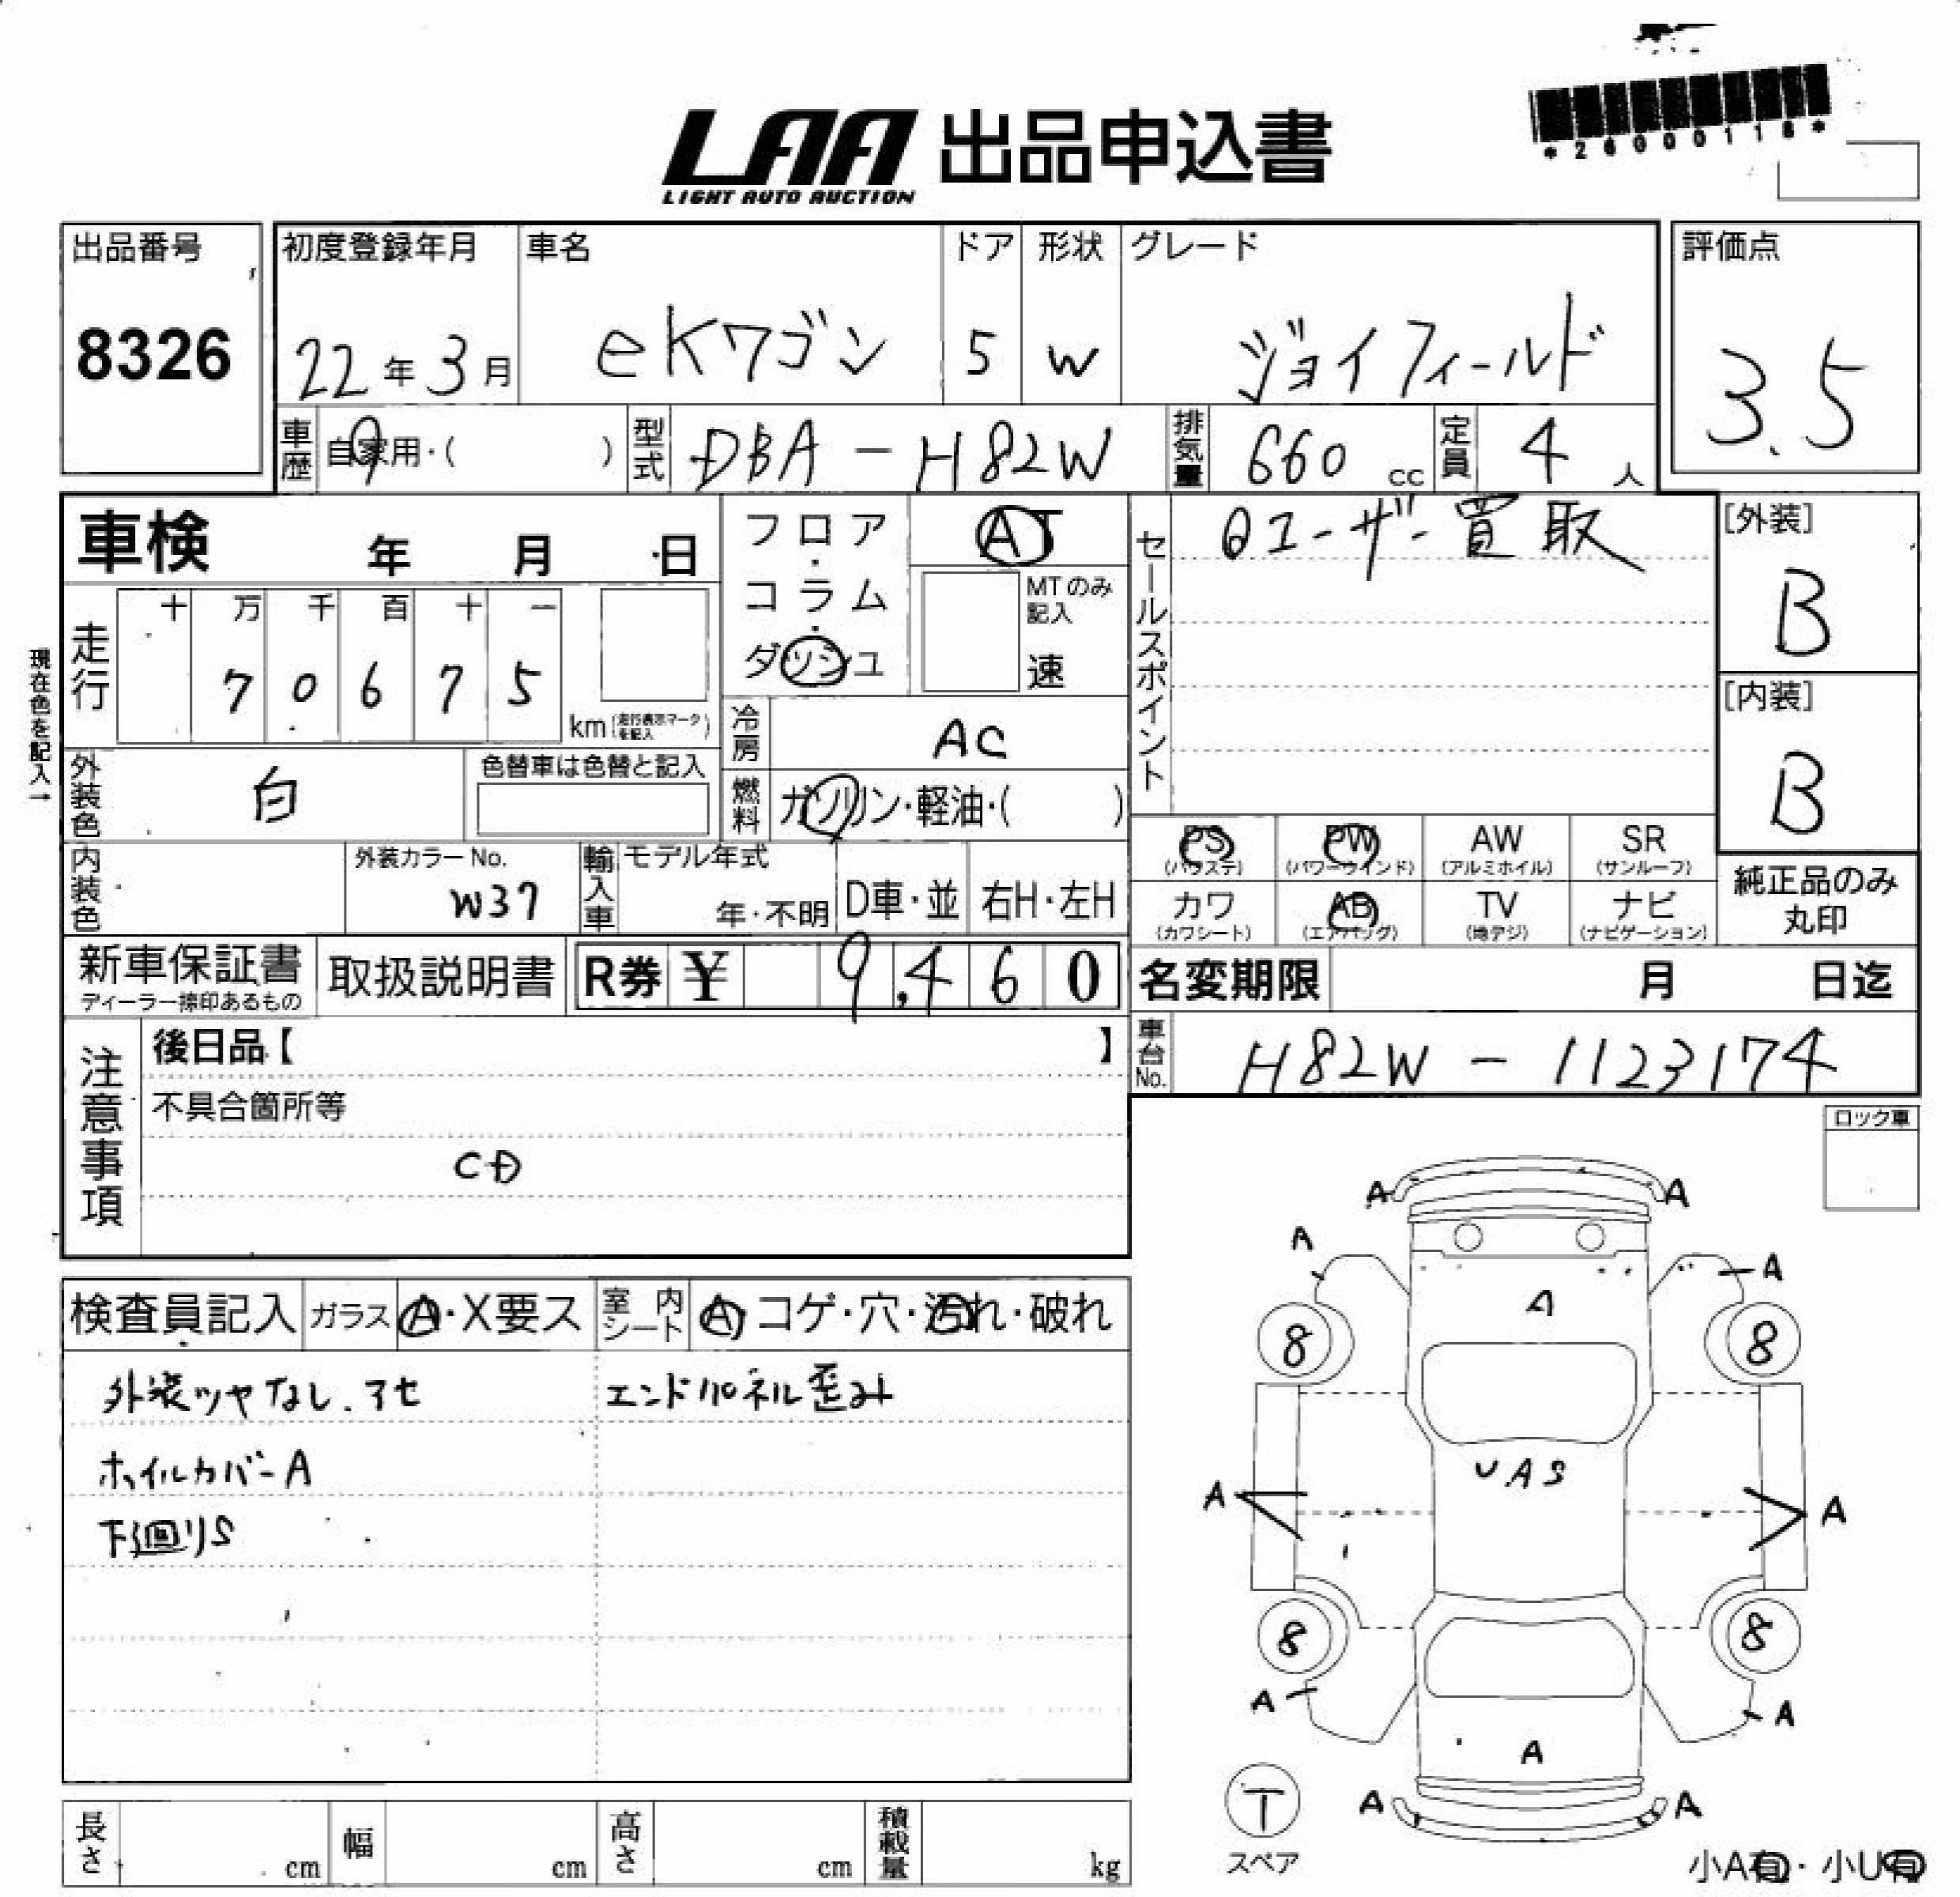 LAA 出品申込書
LIGHT AUTO AUCTION
*26000118*
出品番号
8326
初度登録年月
22年3月
車名
eKワゴン
ドア
5
形状
W
グレード
ジョイフィールド
評価点
3.5
車歴
自家用・( )
型式
DBA-H82W
排気量
660 cc
定員
4 人
車検 年 月 日
フロア・コラム・ダッシュ
AT
MTのみ記入
速
セールスポイント
ユーザー買取
[外装]
B
現在色を記入→
走行
十 万 千 百 十 一
7 0 6 7 5
km(走行表示マークを記入)
[内装]
B
冷房
AC
外装色
白
色替車は色替と記入
燃料
ガソリン・軽油・( )
PS (パワステ)
PW (パワーウインド)
AW (アルミホイル)
SR (サンルーフ)
カワ (カワシート)
AB (エアバッグ)
TV (地デジ)
ナビ (ナビゲーション)
純正品のみ丸印
内装色
外装カラーNo.
W37
輸入車
モデル年式
年・不明
D車・並
右H・左H
新車保証書
ディーラー捺印あるもの
取扱説明書
R券 ¥ 9,460
名変期限 月 日迄
車台No.
H82W-1123174
注意事項
後日品【 】
不具合箇所等
CD
ロック車
検査員記入
ガラス
A・X要ス
室内シート
A・コゲ・穴・汚れ・破れ
外装ツヤなし.アセ
エンドパネル歪み
ホイルカバーA
下廻りS
A A
A A
A
8 8
UAS
A A
8 8
A A
A
A A
T
スペア
小A有・小U有
長さ cm
幅 cm
高さ cm
積載量 kg